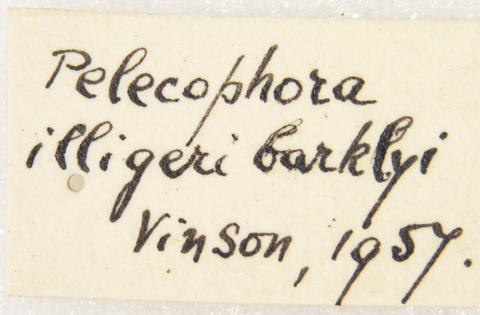 Pelecophora
illigeri barklyi
Vinson, 1957.